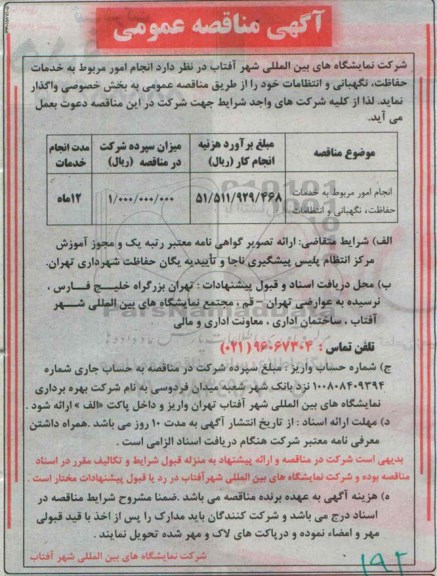 آگهی مناقصه عمومی
شرکت نمایشگاه های بین المللی شهر آفتاب در نظر دارد انجام امور مربوط به خدمات
حفاظت، نگهبانی و انتظامات خود را از طریق مناقصه عمومی به بخش خصوصی واگذار
نماید. لذا از کلیه شرکت های واجد شرایط جهت شرکت در این مناقصه دعوت بعمل
می آید.
موضوع مناقصه
مبلغ برآورد هزینه انجام کار (ریال)
میزان سپرده شرکت در مناقصه (ریال)
مدت انجام خدمات
انجام امور مربوط به خدمات
حفاظت، نگهبانی و انتظامات
۵۱/۵۱۱/۹۲۹/۴۶۸
۱/۰۰۰/۰۰۰/۰۰۰
۱۲ماه
الف) شرایط متقاضی: ارائه تصویر گواهی نامه معتبر رتبه یک و مجوز آموزش
مرکز انتظام پلیس پیشگیری ناجا و تأییدیه یگان حفاظت شهرداری تهران.
ب) محل دریافت اسناد و قبول پیشنهادات : تهران بزرگراه خلیج فارس ،
نرسیده به عوارضی تهران - قم ، مجتمع نمایشگاه های بین المللی شهر
آفتاب ، ساختمان اداری ، معاونت اداری و مالی
تلفن تماس : ۹۶۰۶۷۳۰۴ (۰۲۱)
ج) شماره حساب واریز : مبلغ سپرده شرکت در مناقصه به حساب جاری شماره
۱۰۰۸۰۸۴۰۹۳۹۴ نزد بانک شهر شعبه میدان فردوسی به نام شرکت بهره برداری
نمایشگاه های بین المللی شهر آفتاب تهران واریز و داخل پاکت «الف » ارائه شود .
د) مهلت ارائه اسناد : از تاریخ انتشار آگهی به مدت ۱۰ روز می باشد. همراه داشتن
معرفی نامه معتبر شرکت هنگام دریافت اسناد الزامی است .
بدیهی است شرکت در مناقصه و ارائه پیشنهاد به منزله قبول شرایط و تکالیف مقرر در اسناد
مناقصه بوده و شرکت نمایشگاه های بین المللی شهرآفتاب در رد یا قبول پیشنهادات مختار است .
ه) هزینه آگهی به عهده برنده مناقصه می باشد .ضمنا مشروح شرایط مناقصه در
اسناد درج می باشد و شرکت کنندگان باید مدارک را پس از اخذ با قید قبولی
مهر و امضاء نموده و درپاکت های لاک و مهر شده تحویل نمایند .
شرکت نمایشگاه های بین المللی شهر آفتاب
۱۹۲
ParsNamadData